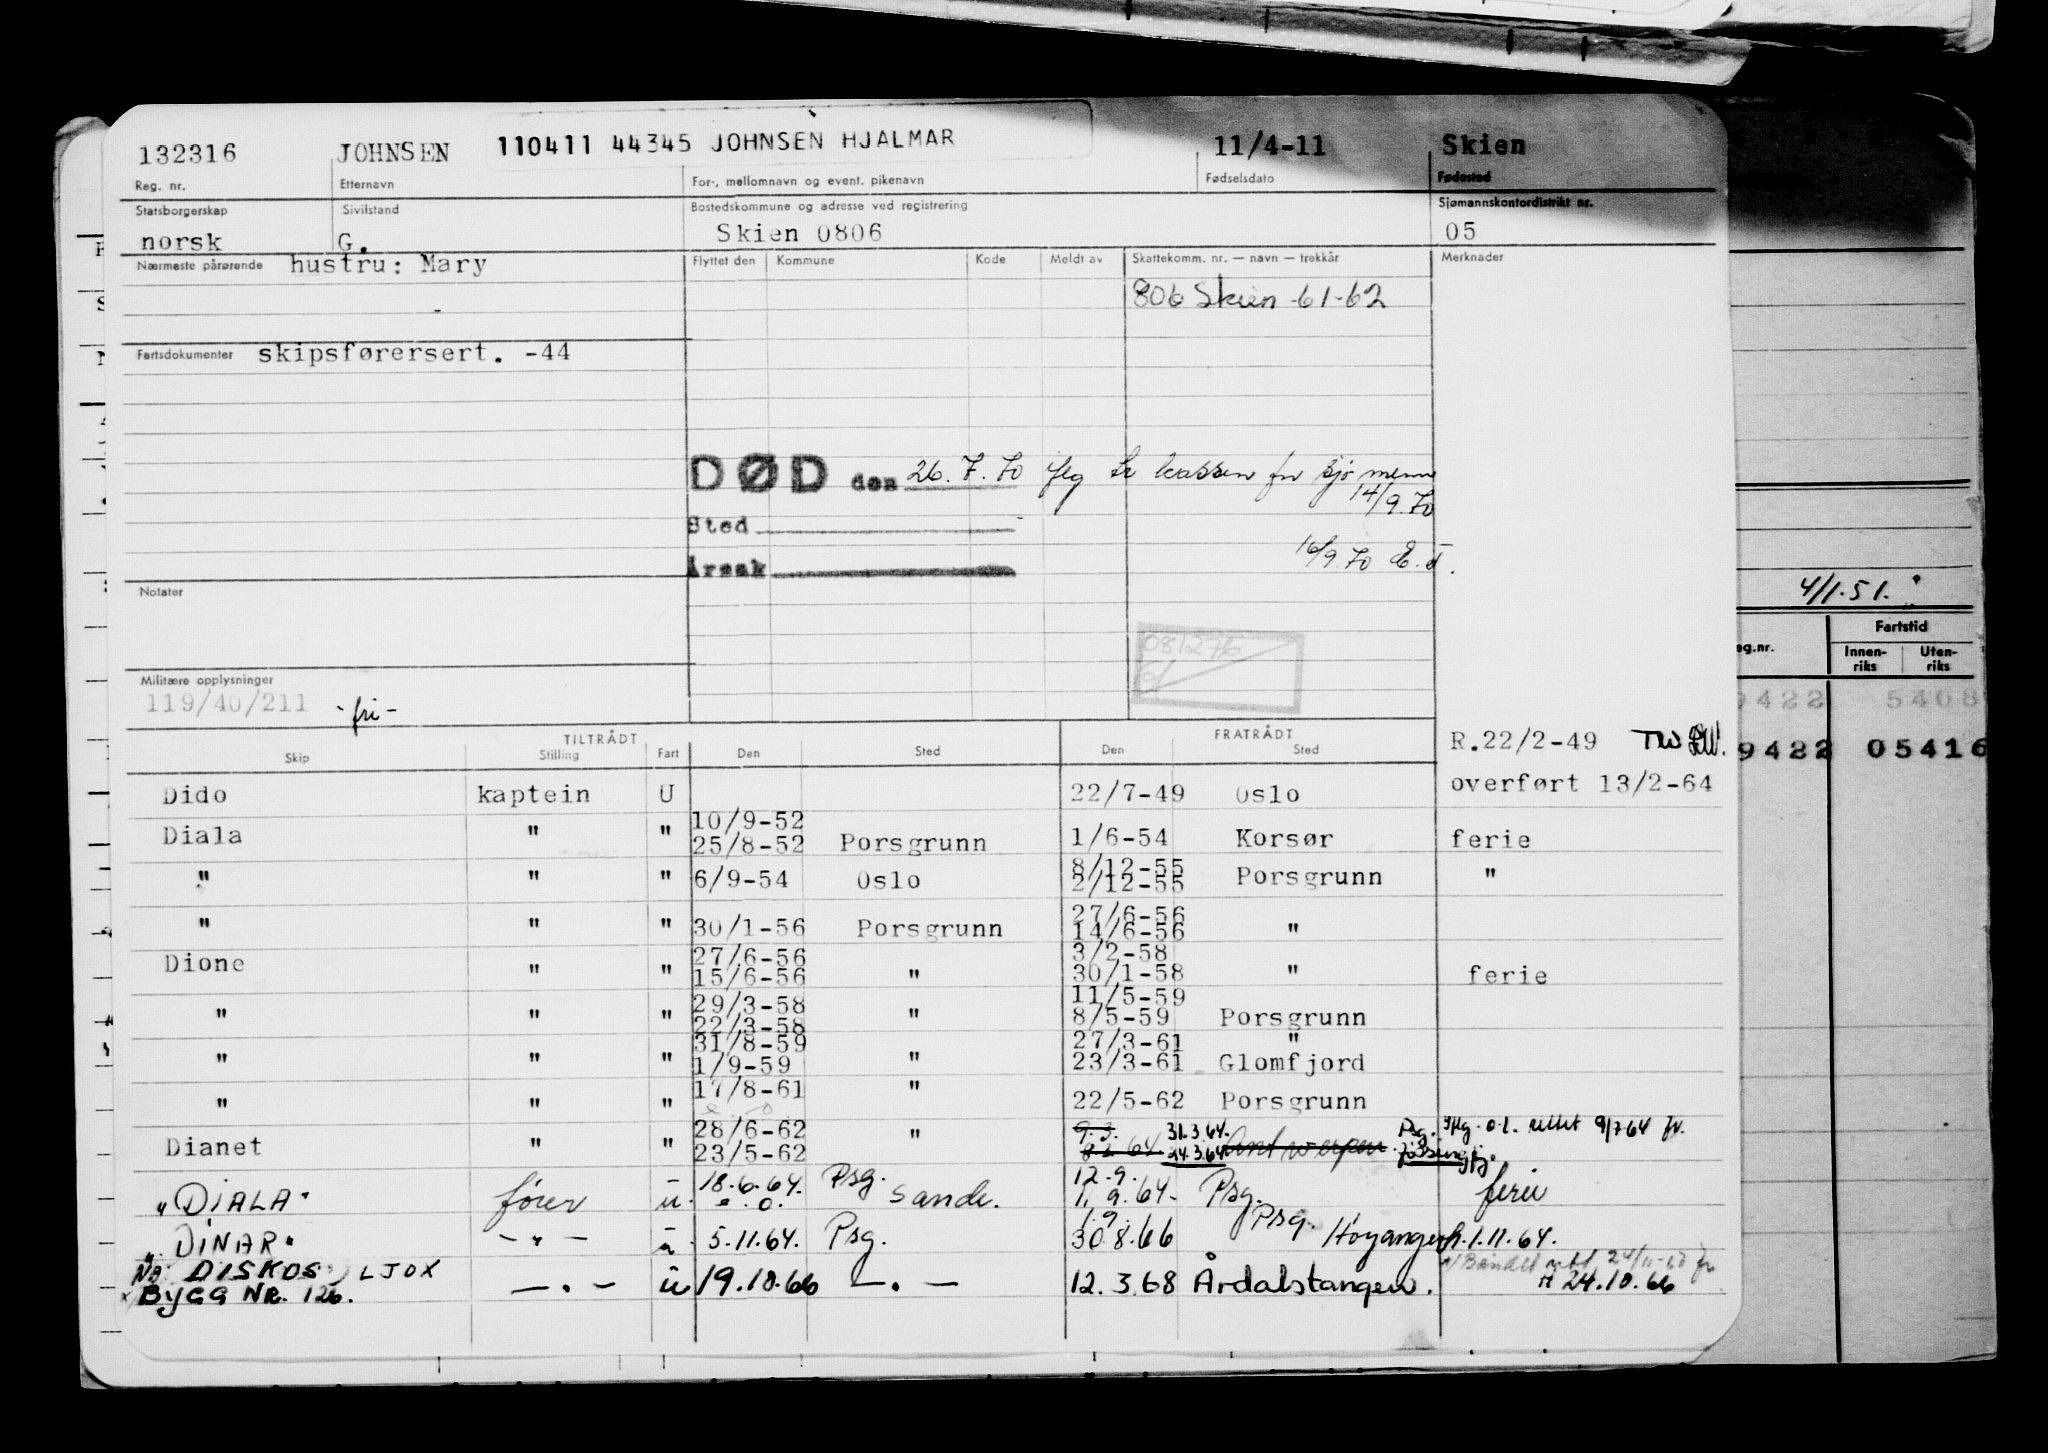 132316 JOHNSEN 110411 44345 JOHNSEN HJALMAR 11/4-11 Skien
Reg. nr. Etternavn For-, mellomnavn og event. pikenavn Fødselsdato Fødested
Statsborgerskap Sivilstand Bostedskommune og adresse ved registrering Sjømannskontordistrikt nr.
norsk G. Skien 0806 05
Nærmeste pårørende hustru: Mary Flyttet den Kommune Kode Meldt av Skattekomm. nr. — navn — trekkår Merknader
806 Skien -61-62
Fartsdokumenter skipsførersert. -44
DØD den 26.7.70 flg kassen for sjømenn
14/9.70
Sted
Årsak
16/9.70
Notater
4/1.51.
Fartstid
Innen-riks Uten-riks
081276
Militære opplysninger
119/40/211 -fri-
9422 05416
TILTRÅDT FRATRÅDT R.22/2-49
Skip Stilling Fart Den Sted Den Sted
Dido kaptein U 22/7-49 Oslo overført 13/2-64
10/9-52
Diala " " 25/8-52 Porsgrunn 1/6-54 Korsør ferie
8/12-55
" " " 6/9-54 Oslo 2/12-55 Porsgrunn "
27/6-56
" " " 30/1-56 Porsgrunn 14/6-56 "
27/6-56 3/2-58
Dione " " 15/6-56 " 30/1-58 " ferie
29/3-58 11/5-59
" " " 22/3-58 " 8/5-59 Porsgrunn
31/8-59 27/3-61 "
" " " 1/9-59 " 23/3-61 Glomfjord
17/8-61 "
" " " 22/5-62 Porsgrunn
28/6-62 " 31.3.64. Psg. rettet 9/7 64
Dianet " " 23/5-62 24.3.64 Antwerpen
18.6.64. Psg. 12.9.
"DIALA" fører u. e.o. Sande. 1.9.64. Psg. ferie
1.9. Psg.
"DINAR" - " - u 5.11.64. Psg. 30.8.66 Høyanger 1.11.64.
DISKOS, LJOX
BYGG NR. 126. — " — u 19.10.66 — " — 12.3.68 Årdalstangen. 24.10.66